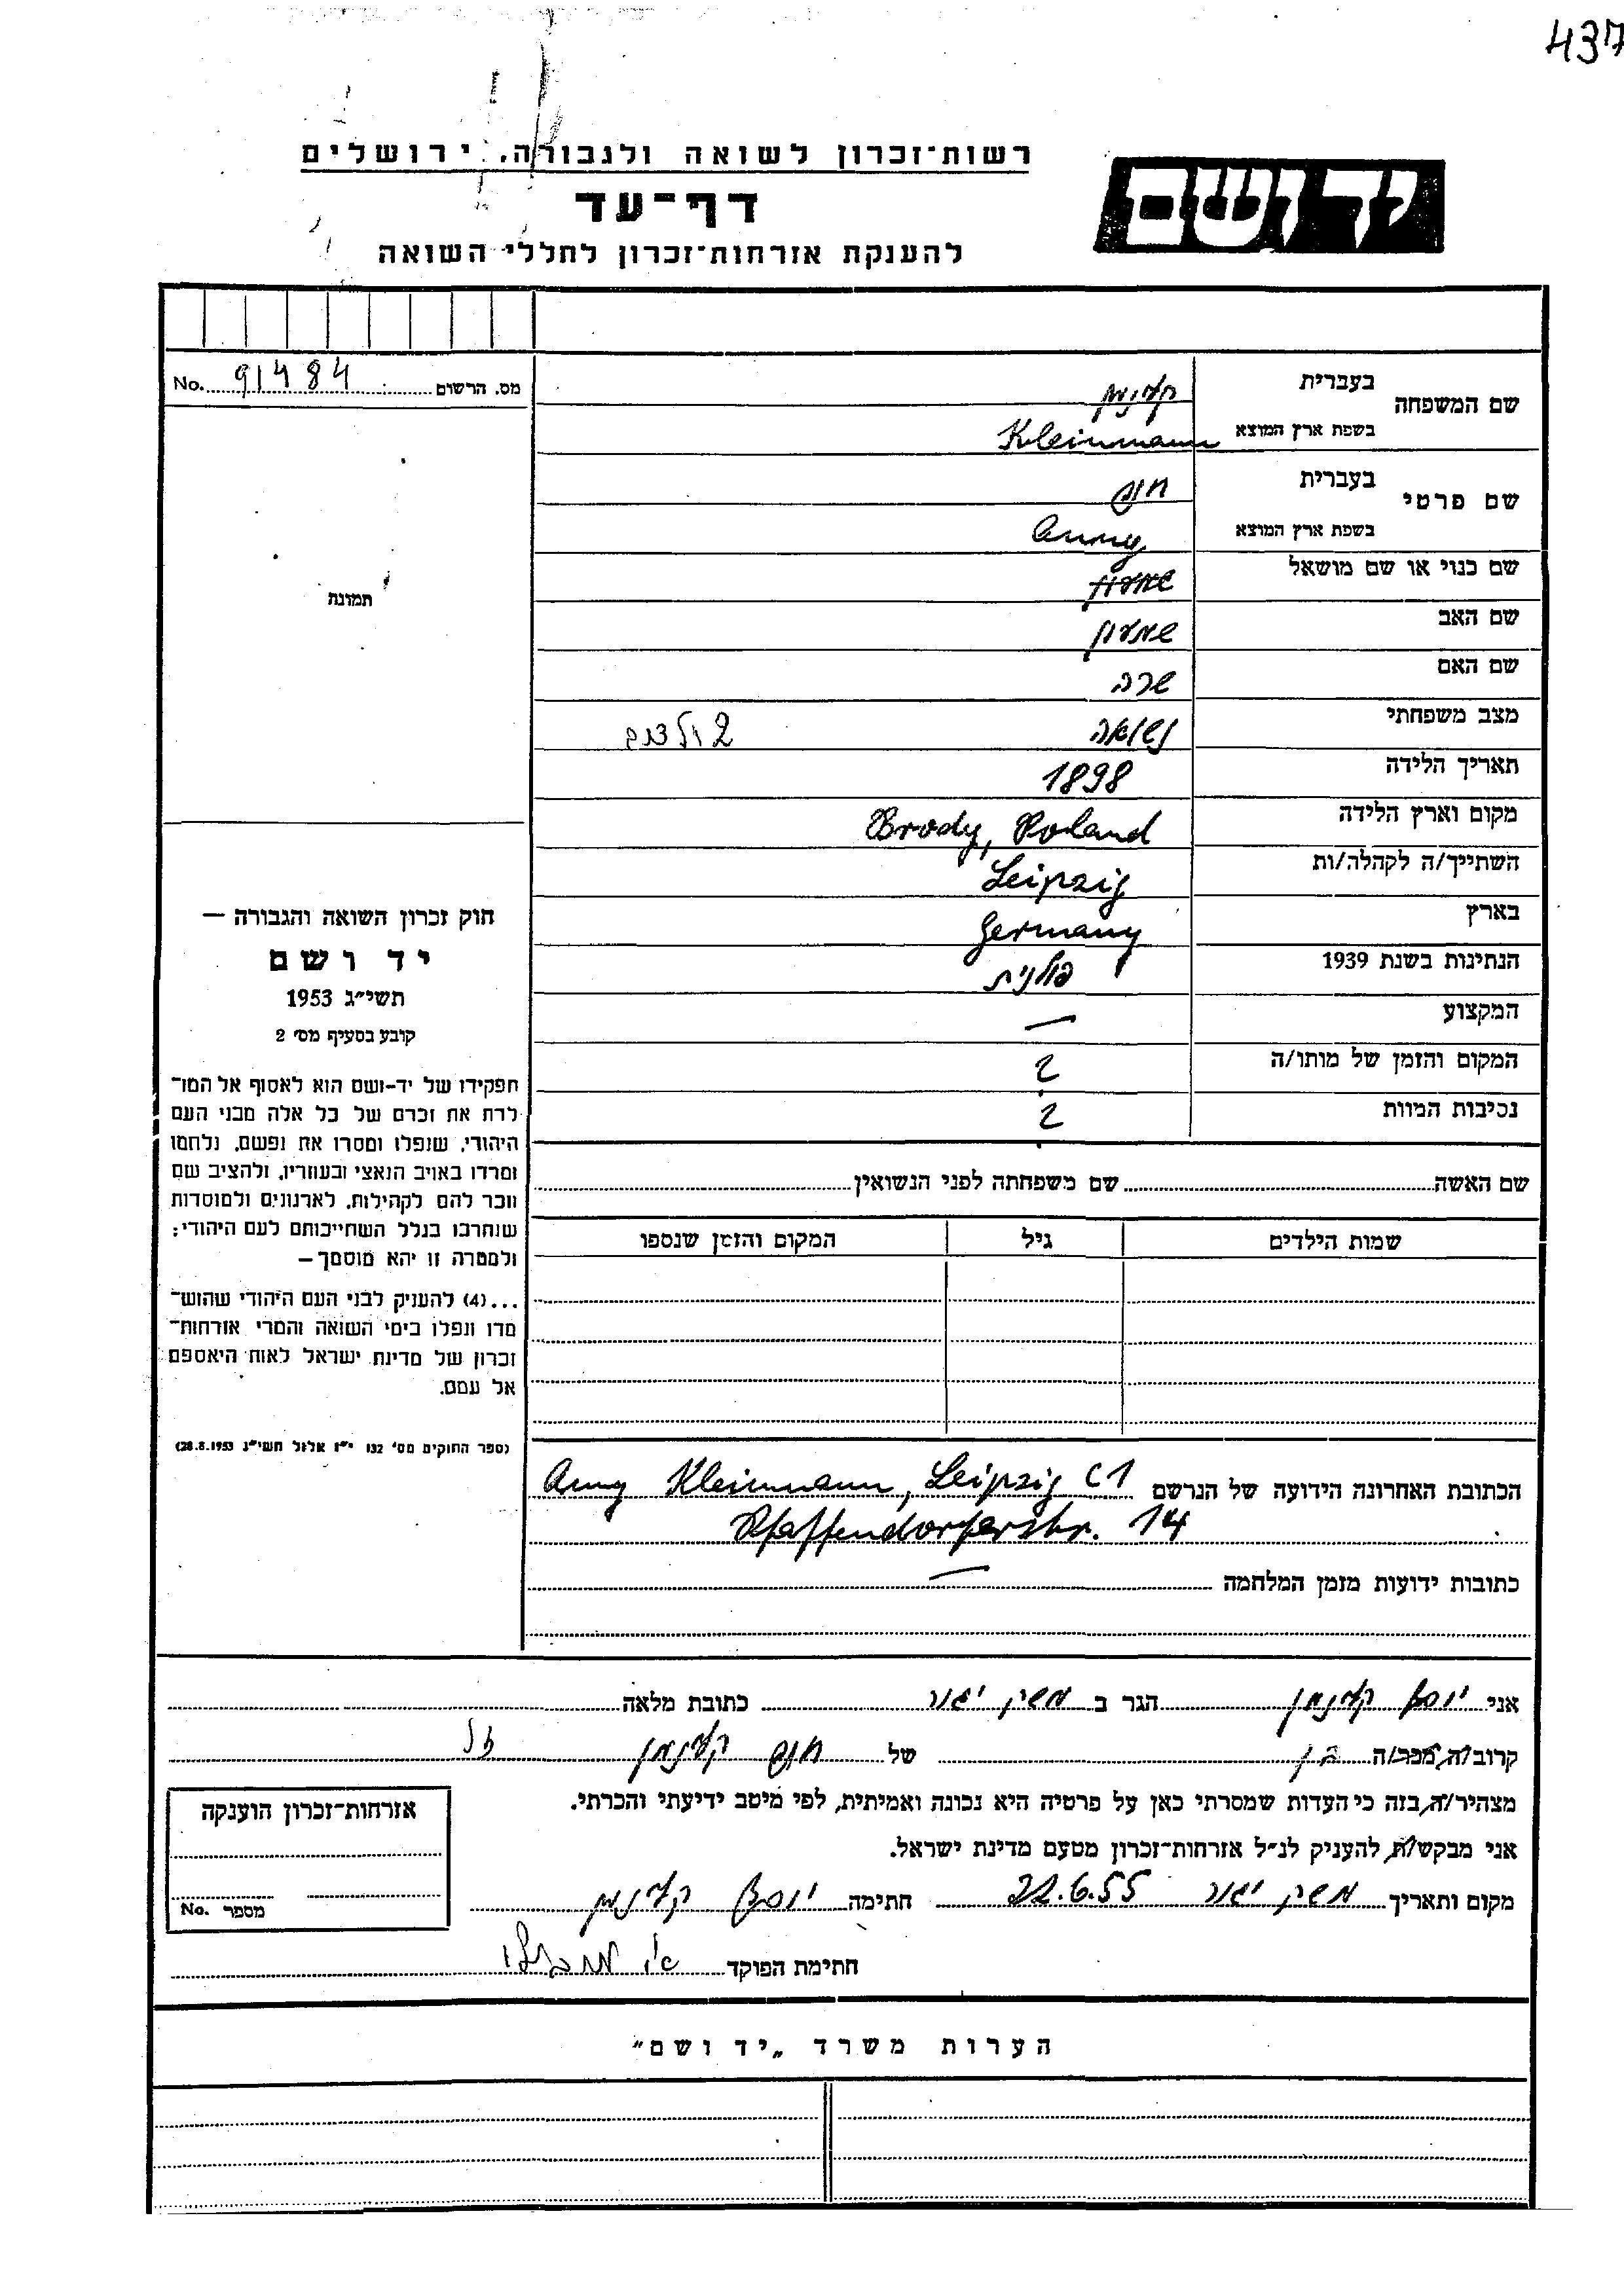 437
רשות־זכרון לשואה ולגבורה, ירושלים
יד ושם
דף־עד
להענקת אזרחות־זכרון לחללי השואה
מס. הרשום 91484 No.
שם המשפחה בעברית קלינמן
בשפת ארץ המוצא Kleinmann
שם פרטי בעברית חנה
בשפת ארץ המוצא Anny
שם כנוי או שם מושאל שמעון
שם האב שמעון
שם האם שרה
מצב משפחתי נשואה 2 ילדים
תאריך הלידה 1898
מקום וארץ הלידה Brody, Poland
השתייך/ה לקהלה/ות Leipzig
בארץ Germany
הנתינות בשנת 1939 פולנית
המקצוע —
המקום והזמן של מותו/ה ?
נסיבות המוות ?
שם האשה שם משפחתה לפני הנשואין
שמות הילדים גיל המקום והזמן שנספו
הכתובת האחרונה הידועה של הנרשם Anny Kleinmann, Leipzig C1
Pfaffendorferstr. 14
כתובות ידועות מזמן המלחמה —
תמונה
חוק זכרון השואה והגבורה —
יד ושם
תשי״ג 1953
קובע בסעיף מס׳ 2
תפקידו של יד-ושם הוא לאסוף אל המו־
לדת את זכרם של כל אלה מבני העם
היהודי, שנפלו ומסרו את נפשם, נלחמו
ומרדו באויב הנאצי ובעוזריו, ולהציב שם
וזכר להם לקהילות, לארגונים ולמוסדות
שנחרבו בגלל השתייכותם לעם היהודי;
ולמטרה זו יהא מוסמך—
...(4) להעניק לבני העם היהודי שהוש־
מדו ונפלו בימי השואה והמרי אזרחות־
זכרון של מדינת ישראל לאות היאספם
אל עמם.
(ספר החוקים מס׳ 132 י״ז אלול תשי״ג 28.8.1953)
אני יוסף קלינמן הגר ב משק יגור כתובת מלאה
קרוב/ה מכר/ה בן של חנה קלינמן ז״ל
מצהיר/ה בזה כי העדות שמסרתי כאן על פרטיה היא נכונה ואמיתית, לפי מיטב ידיעתי והכרתי.
אני מבקש/ת להעניק לנ״ל אזרחות־זכרון מטעם מדינת ישראל.
מקום ותאריך משק יגור 22.6.55 חתימה יוסף קלינמן
חתימת הפוקד
אזרחות־זכרון הוענקה
מספר No.
הערות משרד „יד ושם״